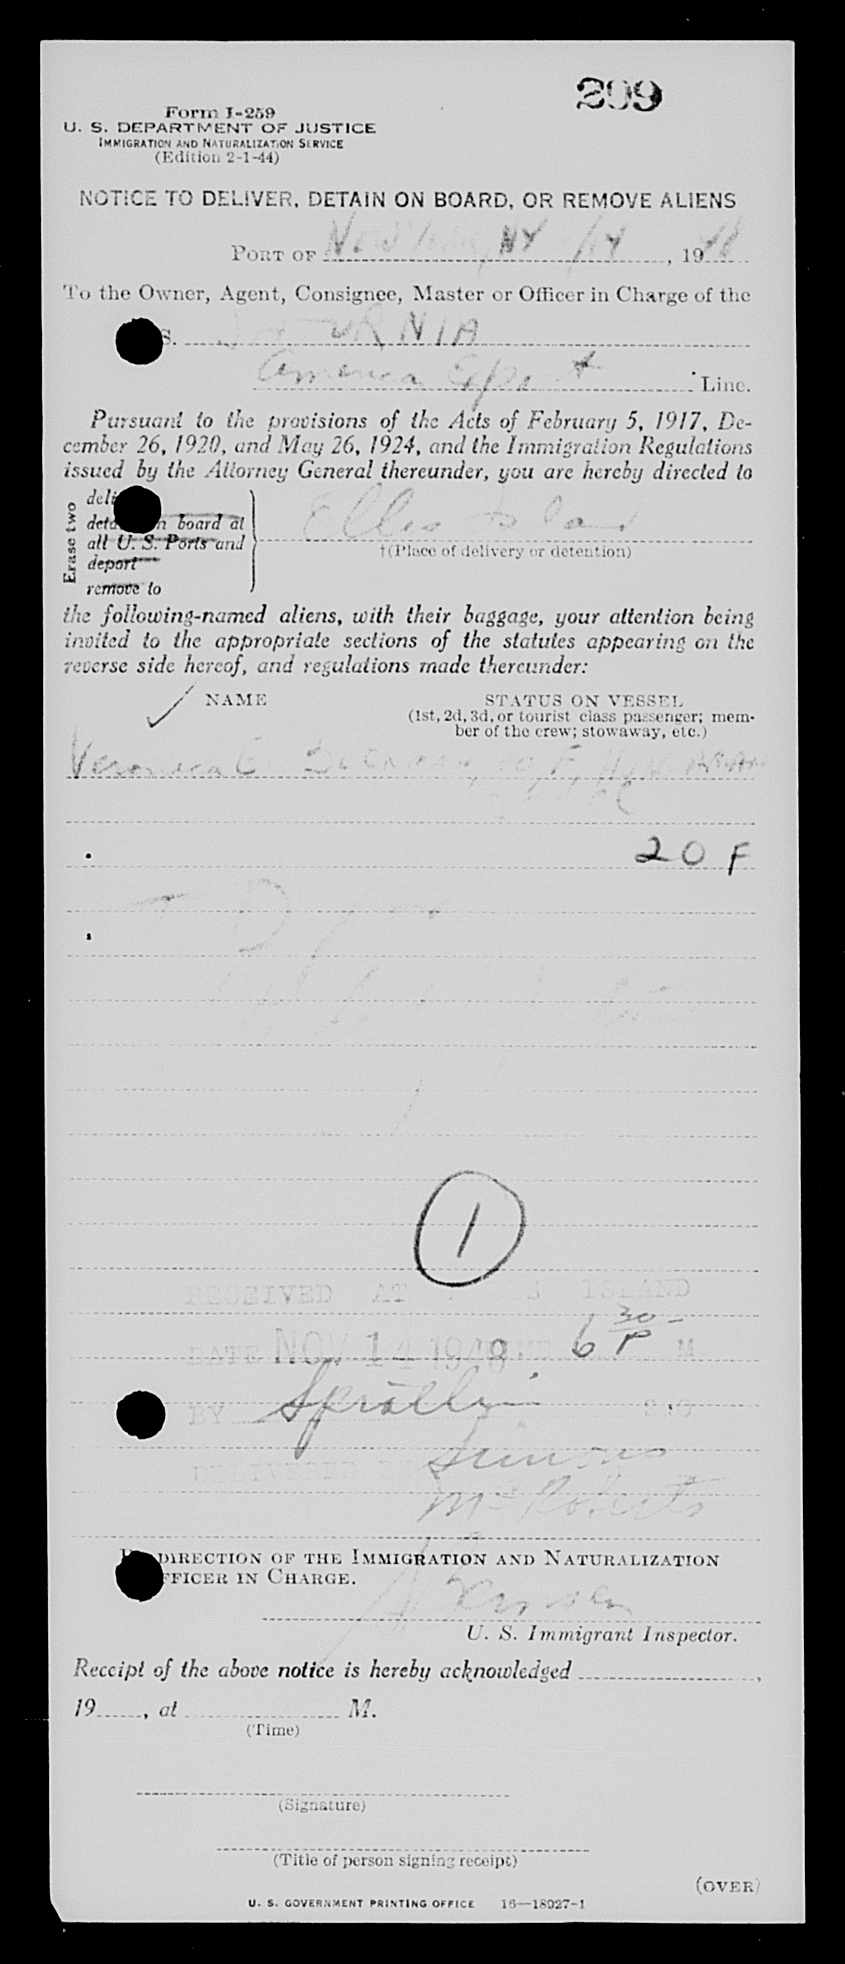 299
Form I-259
U. S. DEPARTMENT OF JUSTICE
IMMIGRATION AND NATURALIZATION SERVICE
(Edition 2-1-44)
NOTICE TO DELIVER, DETAIN ON BOARD, OR REMOVE ALIENS
PORT OF New York, NY 11/14, 1948
To the Owner, Agent, Consignee, Master or Officer in Charge of the
S. SATURNIA
American Export Line.
Pursuant to the provisions of the Acts of February 5, 1917, De-
cember 26, 1920, and May 26, 1924, and the Immigration Regulations
issued by the Attorney General thereunder, you are hereby directed to
Erase two
deli
deta n board at
all U. S. Ports and
deport
remove to
Ellis Island
†(Place of delivery or detention)
the following-named aliens, with their baggage, your attention being
invited to the appropriate sections of the statutes appearing on the
reverse side hereof, and regulations made thereunder:
✓ NAME STATUS ON VESSEL
(1st, 2d, 3d, or tourist class passenger; mem-
ber of the crew; stowaway, etc.)
Veronica F,
20 F
1
RECEIVED AT ISLAND
DATE NOV 14 1948 6 30 P M
BY
DELIVERED
Simons
McRoberts
DIRECTION OF THE IMMIGRATION AND NATURALIZATION
FFICER IN CHARGE.
U. S. Immigrant Inspector.
Receipt of the above notice is hereby acknowledged ,
19 , at M.
(Time)
(Signature)
(Title of person signing receipt)
(OVER)
U. S. GOVERNMENT PRINTING OFFICE 16—18027-1